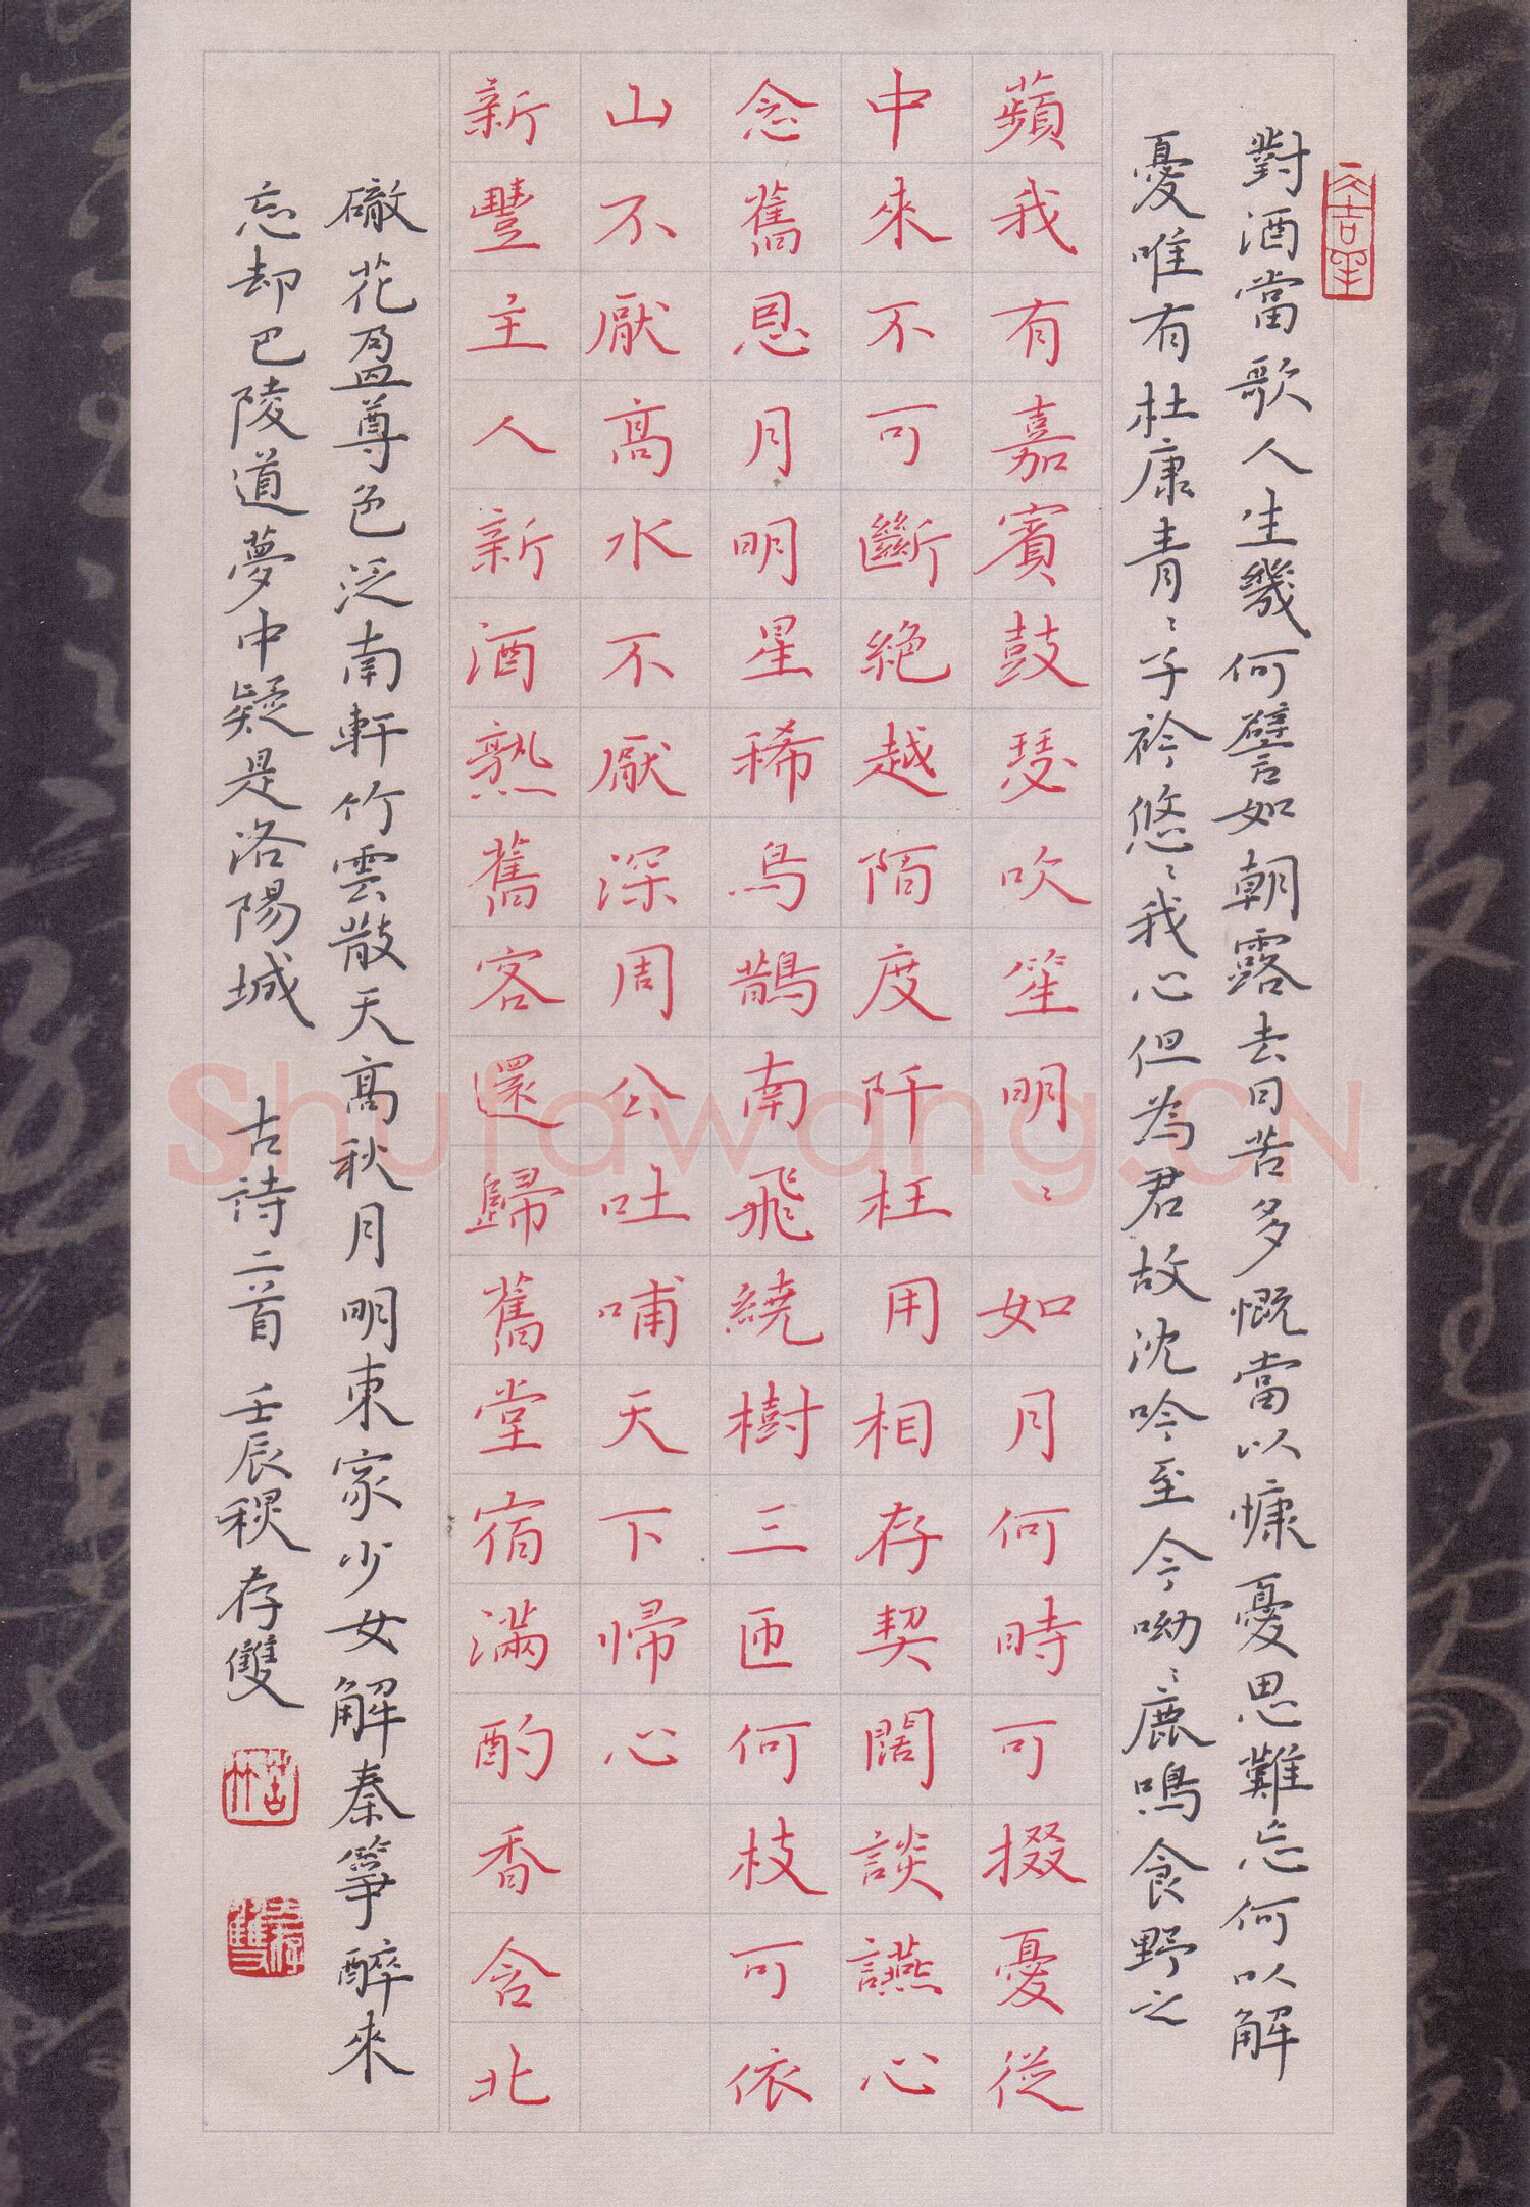 大吉羊
對酒當歌人生幾何譬如朝露去日苦多慨當以慷憂思難忘何以解
憂唯有杜康青〻子衿悠〻我心但為君故沈吟至今呦〻鹿鳴食野之
蘋我有嘉賓鼓瑟吹笙明〻如月何時可掇憂從
中來不可斷絕越陌度阡枉用相存契闊談讌心
念舊恩月明星稀烏鵲南飛繞樹三匝何枝可依
山不厭高水不厭深周公吐哺天下帰心
新豐主人新酒熟舊客還歸舊堂宿滿酌香含北
花盈尊色泛南軒竹雲散天高秋月明東家少女解秦箏醉來
忘却巴陵道夢中疑是洛陽城 古詩二首 壬辰秋 存雙
Shufawang.CN